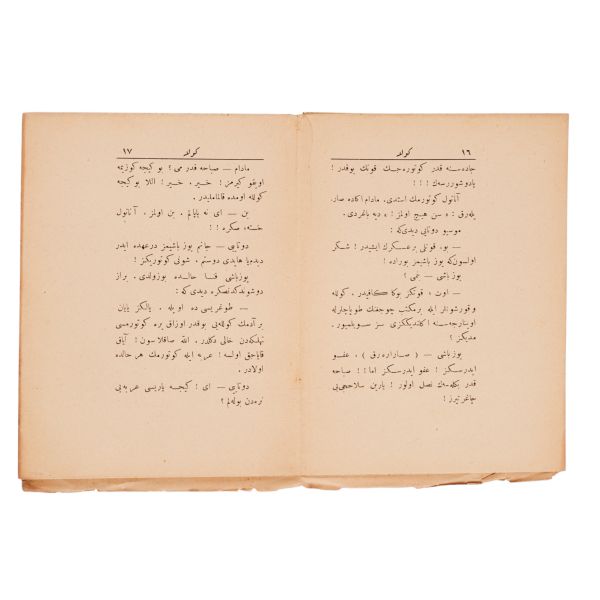 ١٦ كولله
جاده‌سنه قدر كوتوره‌جك قوتك يوقدر !
يا دوشوررسه‌ك ! ! !
آناتول كوتورمك استدى . مادام اكا ده صار‌
يله‌رق : « سن هيچ اولمز ! » ديه باغردى .
موسيو دوتايى ديدى‌كه :
— بو ، قوتلى بر عسكرك ايشيدر ! شكر
اولسون‌كه يوز باشيمز بوراده !
يوز باشى — بمى ؟
— اوت ، قوتكز بوكا كافيدر . كولله
و قورشونلر ايله بر مكتب چوجغنك طوپاجلرله
اوينارجه‌سنه اكلنديككزى سز سويلميور‌
ميديكز ؟
يوز باشى — ( صاراره‌رق ) . عفو
ايدرسكز ! عفو ايدرسكز اما ! ! صباحه
قدر بكله‌مك نصل اولور ! يارين سلاحجى‌يى
چاغرتيرز !
كولله ١٧
مادام — صباحه قدر مى ؟ بو كيجه كوزيمه
اويقو كيرمز ! خير . خير ! الله بو كيجه
كولله اومده قالمامليدر .
بن — اى نه ياپالم . بن اولمز ، آناتول
خسته ، صكره ! !
دوتايى — جانم يوز باشيمز درعهده ايدر
ديده يا هايدى دوستم . شونى كوتوريكز !
يوز باشى فنا حالده بوزولدى . براز
دوشوندكدنصكره ديدى كه :
— طوغريسى ده اويله . يالكز يايان
بر آدمك كولله‌يى بوقدر اوزاق يره كوتورمسى
تهلكه‌دن خالى دكلدر . الله صاقلاسون ! آياق
قاياجق اولسه ! عربه ايله كوتورمك هر حالده
اولادر .
دوتايى — اى ! كيجه ياريسى عربه‌يى
نره‌دن بوله‌لم ؟